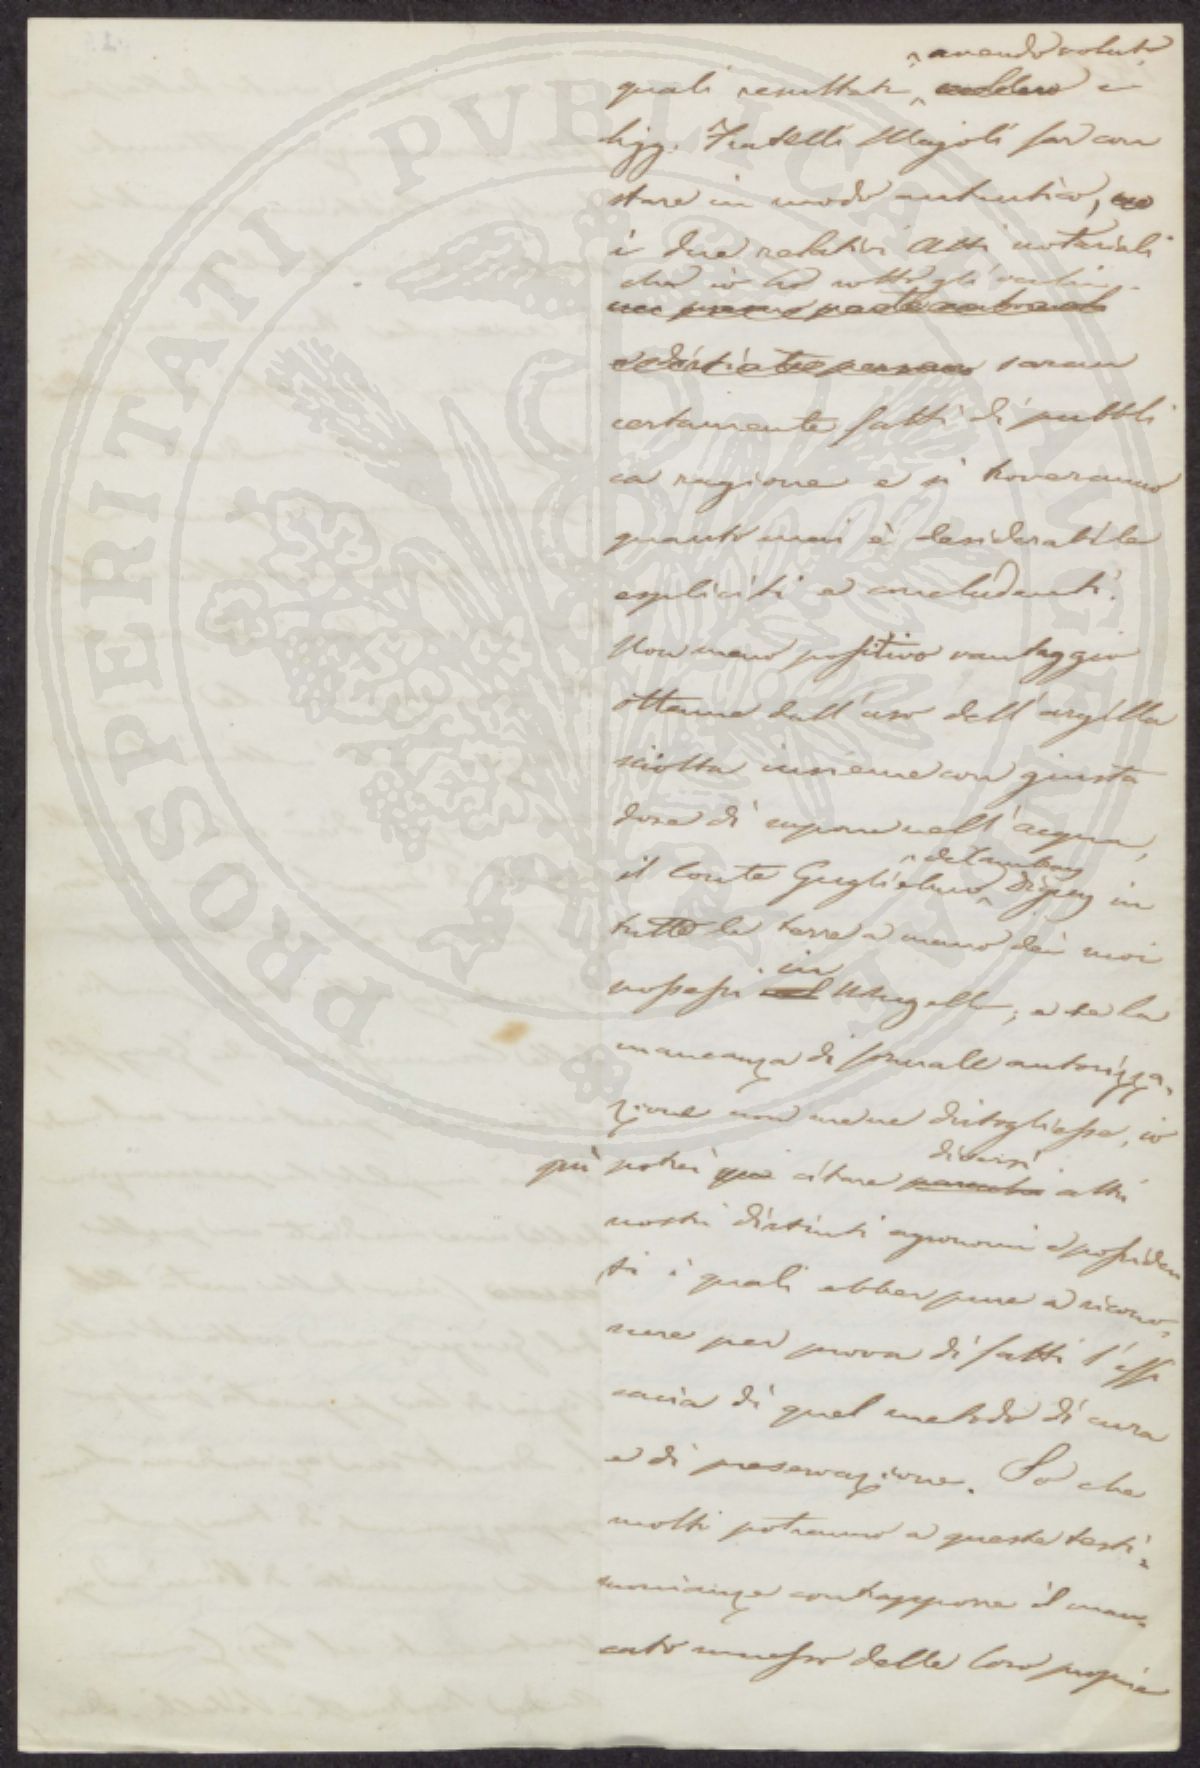 avendo voluto
quali resultati, i
Sigg. Fratelli Majoli far con
stare in modo autentico,
i due relativi Atti notariali
che io ho sott'occhio
saran
certamente fatti di pubbli
ca ragione e si troveranno
quanto mai è desiderabile
espliciti e concludenti.
Non meno positivo vantaggio
ottenne dall'uso dell'argilla
sciolta insieme con giusta
dose di sapone nell'acqua,
il Conte Guglielmo de Cambray Digny in
tutte le terre a mano dei suoi
possessi in Mugello; e se la
mancanza di formale autorizza-
zione non me ne distogliesse, io
quì potrei citare diversi altri
nostri distinti agronomi e possiden
ti i quali ebber pure a ricono-
scere per prova di fatti l'effi
cacia di quel metodo di cura
e di preservazione. So che
molti potranno a queste testi-
monianze contrapporre il man-
cato successo delle loro proprie
PROSPERITATI PVBLICAE AVGENDAE